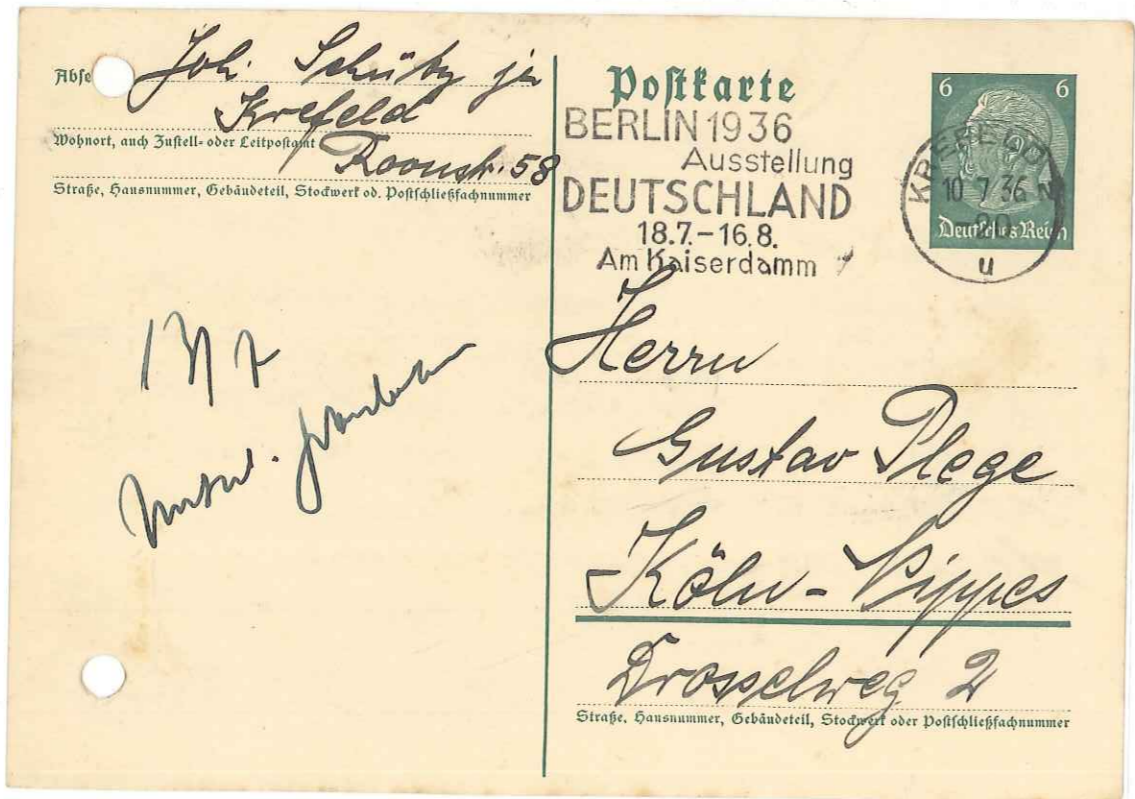 Abse
Joh. Schüby jr
Krefeld
Wohnort, auch Zustell- oder Leitpostamt
Roonstr. 58
Straße, Hausnummer, Gebäudeteil, Stockwerk od. Postschließfachnummer
13/7
Postkarte
BERLIN 1936
Ausstellung
DEUTSCHLAND
18.7.-16.8.
Am Kaiserdamm
6 6
Deutsches Reich
KREFELD
10 7 36
-20
u
Herrn
Gustav Plege
Köln-Nippes
Drosselweg 2
Straße, Hausnummer, Gebäudeteil, Stockwerk oder Postschließfachnummer